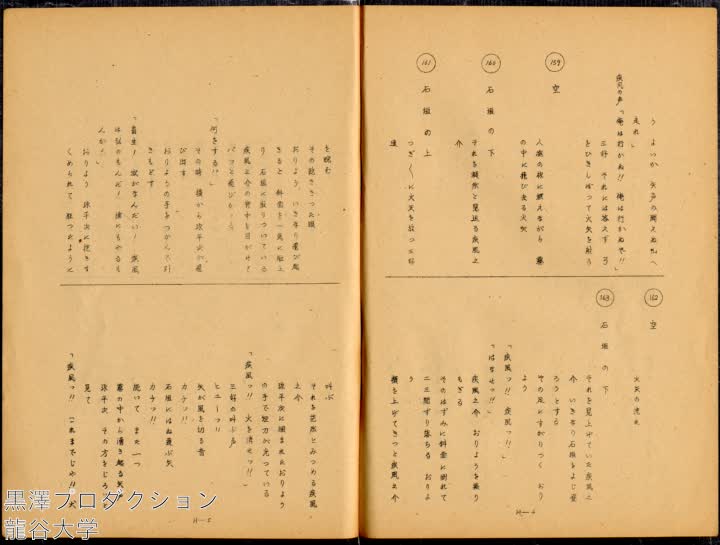 うよいか 矢声の聞えぬ処へ
走れ」
疾風の声「俺は行かぬ!! 俺は行かぬぞ!!」
三好 それには答えず 弓
をひきしぼって火矢を射る
159 空
の中に飛び去る火矢
160 石垣の下
それを凝然と見送る疾風之
介
161 石垣の上
つぎ〱に火矢を放つ三好
達
162 空
火矢の流れ
163 石垣の下
それを見上げていた疾風之
介 いきなり石垣をよじ登
ろうとする
その足にすがりつく おり
よう
「疾風っ!! 疾風っ!!」
「はなせっ!!」
疾風之介 おりようを蹴り
もぎる
そのはずみに斜面に倒れて
二三間ずり落ちる おりよ
う
顔を上げてきっと疾風之介
H—4
を睨む
その飽ききった眼
おりよう いきなり飛び起
きると 斜面を一気に駈上
り 石垣に取りついている
疾風之介の背中を目がけて
パッと飛びかゝる
「何をする!!」
その時 横から弥平次が飛
び出す
おりようの手をつかんで引
きもどす
「畜生! 放がなんだい! 疾風
は私のもんだ! 誰にもやるも
んか!」
おりよう 弥平次に抱きす
くめられて 狂ったように
叫ぶ
それを茫然とみつめる疾風
之介
弥平次に掴まれたおりよう
の手で短刀が光っている
「疾風っ!! 火を消せっ!!」
三好の叫ぶ声
ヒューッ!!
矢が風を切る音
カチッ!!
石垣にはね飛ぶ矢
カチッ!!
続いて また一つ
霧の中から湧き起る矢声
弥平次 その方をじろりと
見て
「疾風っ!! これまでじゃ!! 火
H—5
黒澤プロダクション
龍谷大学